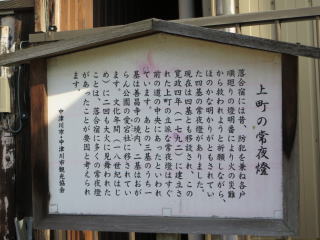 上町の常夜燈
落合宿には昔、防犯を兼ね各戸
順廻りの燈明番により火の災難
から救われようと祈願しながら、
ほのかな明かりがともされてい
た四基の常夜燈がありました。
現在は四基とも移設され、この
寛政四年（一七九二）に建立さ
れた上町の立派な常夜燈はすぐ
前の道の中央にあったといわれ
ています。あとの三基のうち一
基は善昌寺の境内、二基はおが
らん公園の愛宕社に移されてい
ます。文化年間（一八世紀はじ
め）に二回も大火に見舞われた
ことは、落合宿に多くの常夜燈
があったことが要因と考えられ
ます。
中津川市・中津川市観光協会